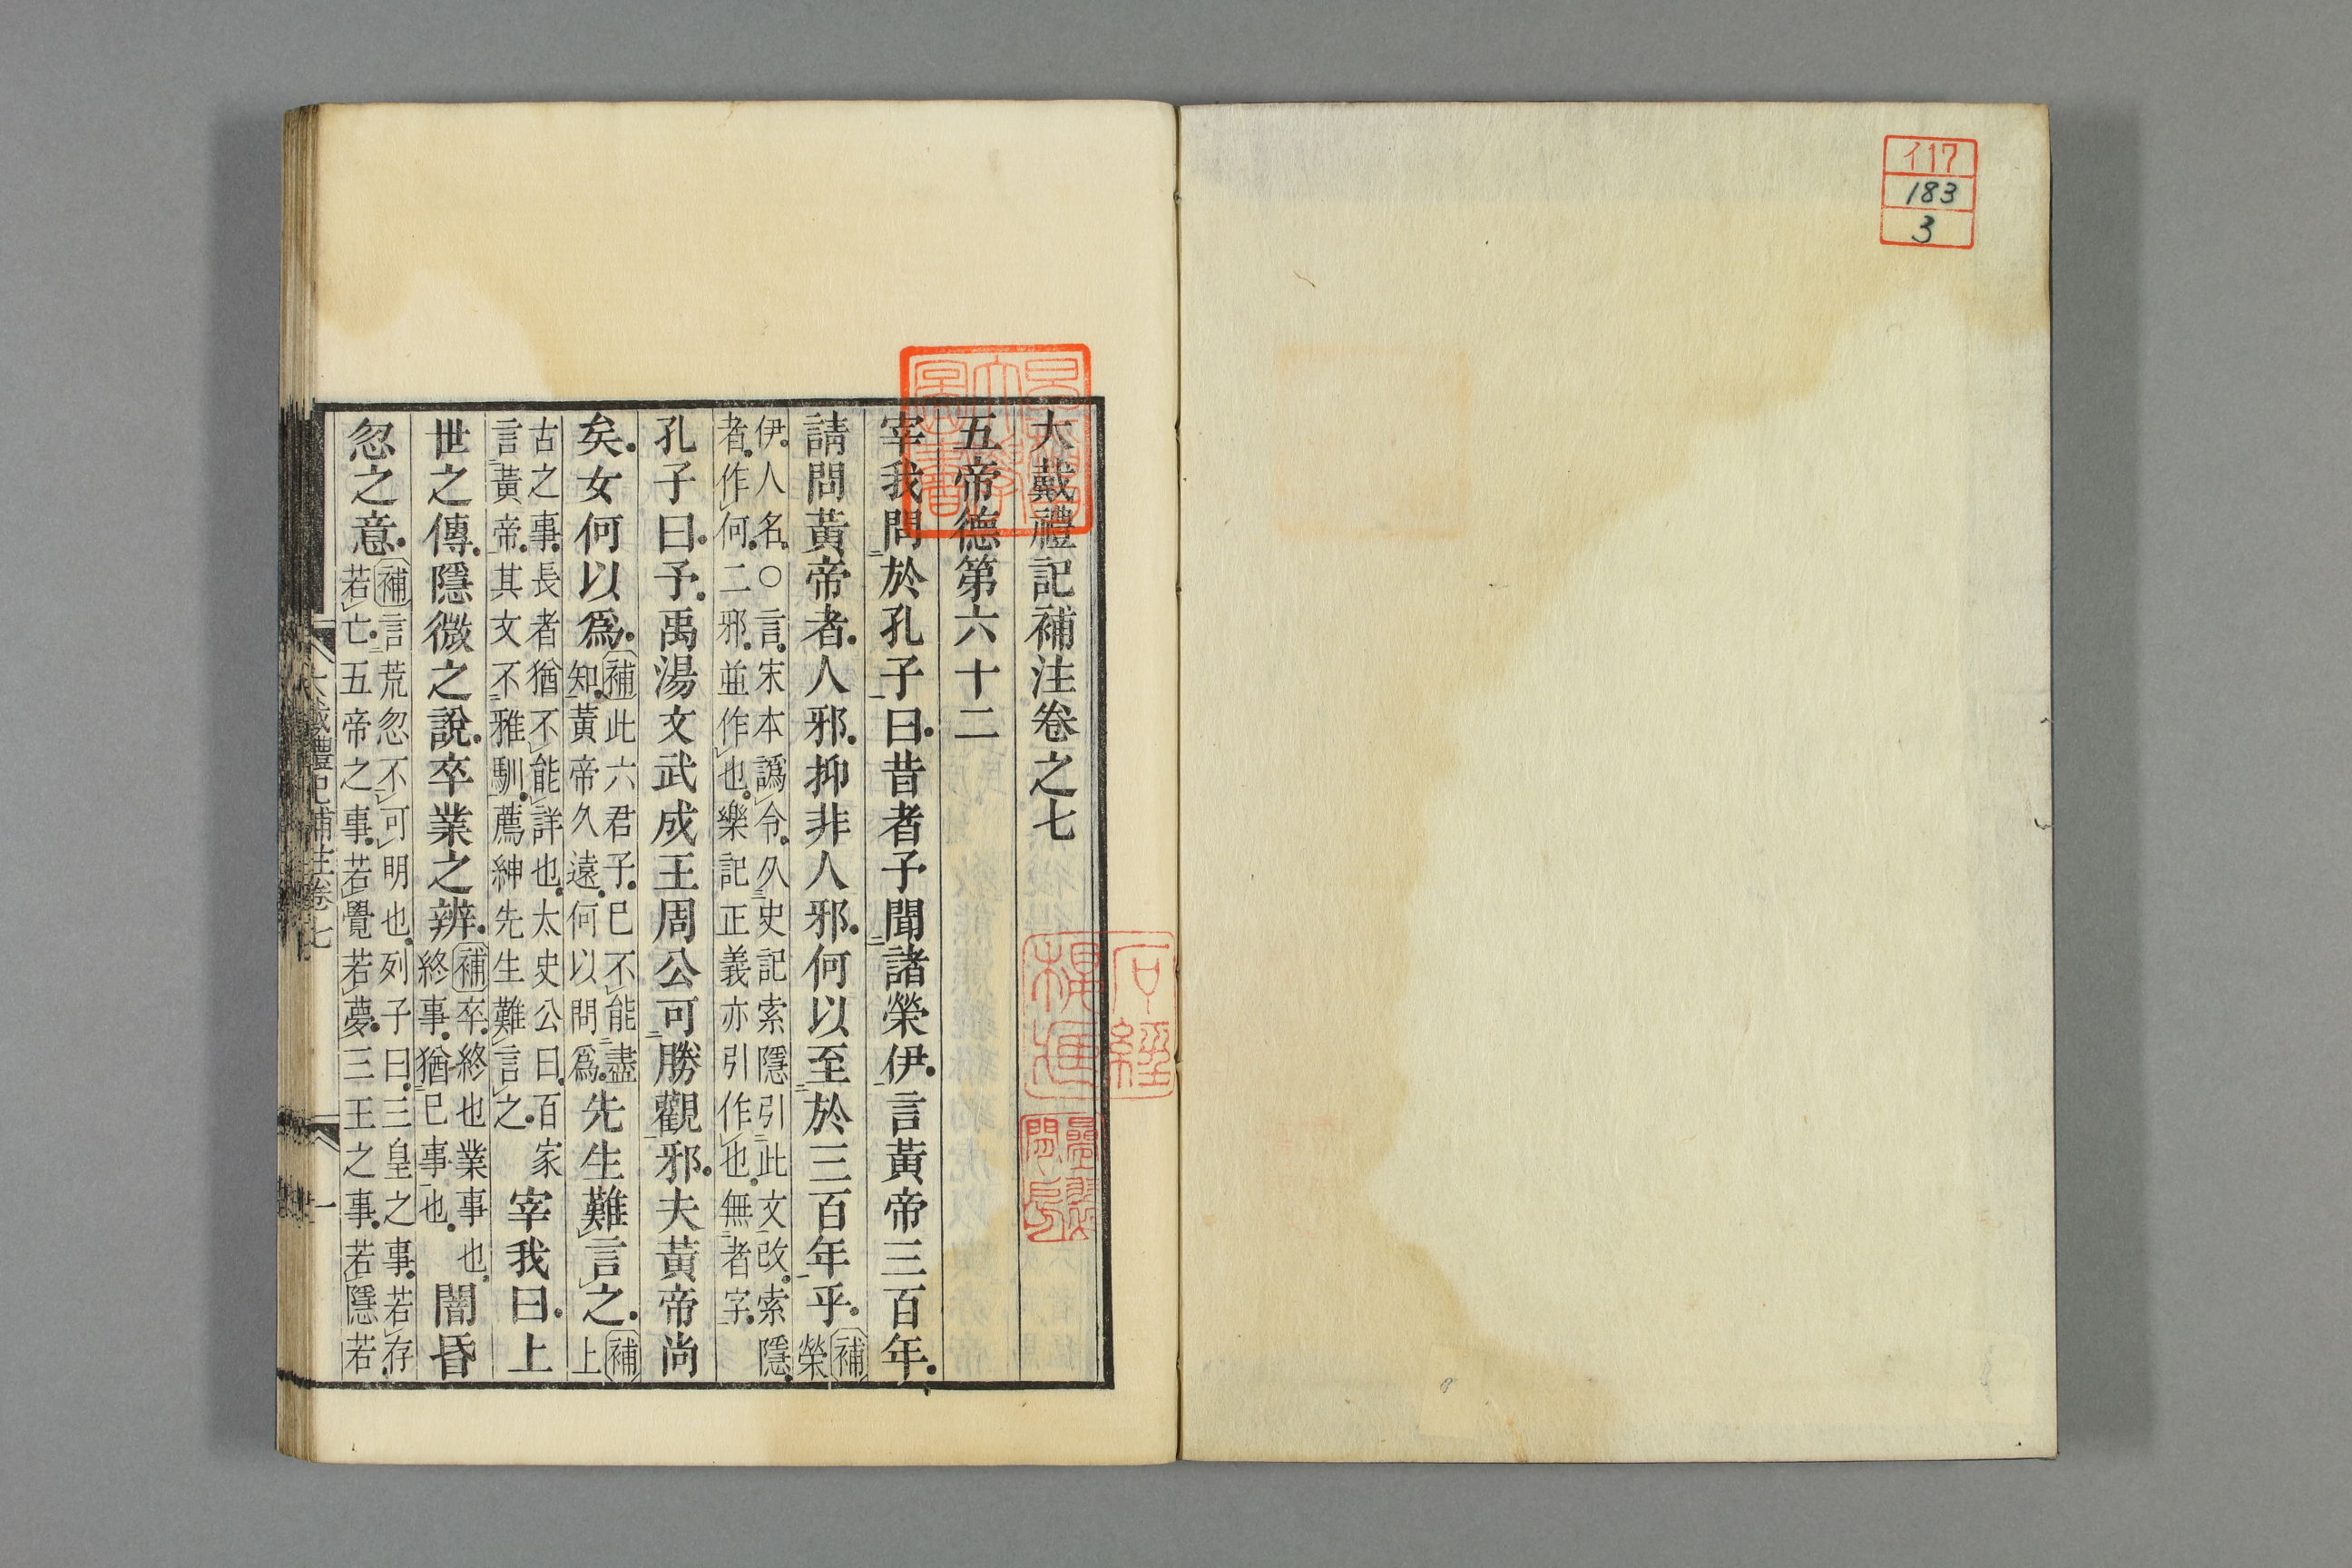 イ17
183
3
大戴禮記補注卷之七
五帝德第六十二
宰我問於孔子曰昔者子聞諸榮伊言黃帝三百年
請問黃帝者人邪抑非人邪何以至於三百年乎補榮
伊人名○言宋本譌令久史記索隱引此文改索隱
者作何二邪並作也樂記正義亦引作也無者字
孔子曰予禹湯文武成王周公可勝觀邪夫黃帝尚
矣女何以爲補此六君子已不能盡知黃帝久遠何以問爲先生難言之補上
古之事長者猶不能詳也太史公曰百家言黃帝其文不雅馴薦紳先生難言之宰我曰上
世之傳隱微之說卒業之辨補卒終也業事也終事猶已事也闇昏
忽之意補言荒忽不可明也列子曰三皇之事若存若亡五帝之事若覺若夢三王之事若隱若
大戴禮記補注卷七
一